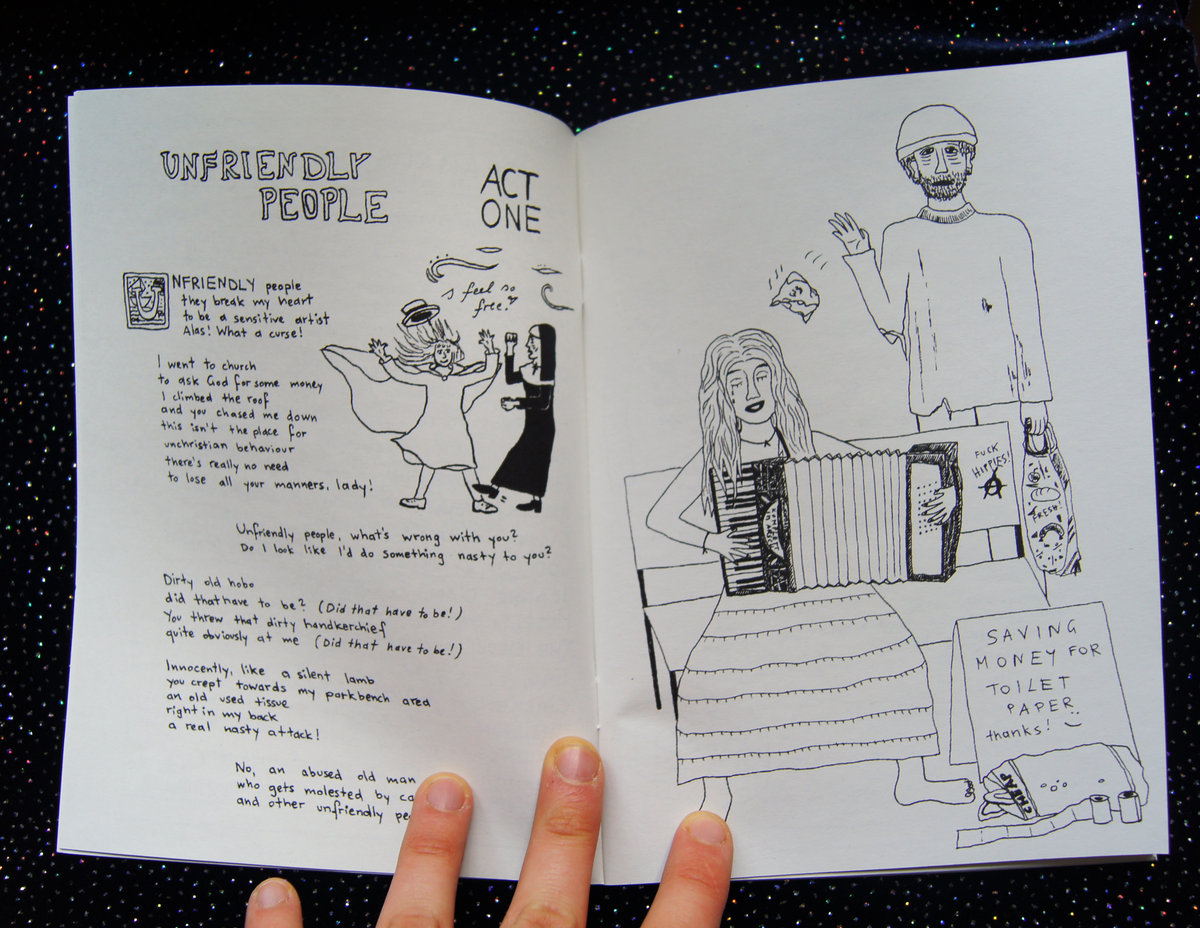 UNFRIENDLY
PEOPLE
ACT
ONE
UNFRIENDLY people
they break my heart
to be a sensitive artist
Alas! What a curse!
I feel so
free!
I went to church
to ask God for some money
I climbed the roof
and you chased me down
this isn't the place for
unchristian behaviour
there's really no need
to lose all your manners, lady!
Unfriendly people, what's wrong with you?
Do I look like I'd do something nasty to you?
Dirty old hobo
did that have to be? (Did that have to be!)
You threw that dirty handkerchief
quite obviously at me (Did that have to be!)
Innocently, like a silent lamb
you crept towards my parkbench area
an old used tissue
right in my back
a real nasty attack!
No, an abused old man
who gets molested by
and other unfriendly
FUCK
HIPPIES!
FRESH!
SAVING
MONEY FOR
TOILET
PAPER
thanks! :)
CHEAP